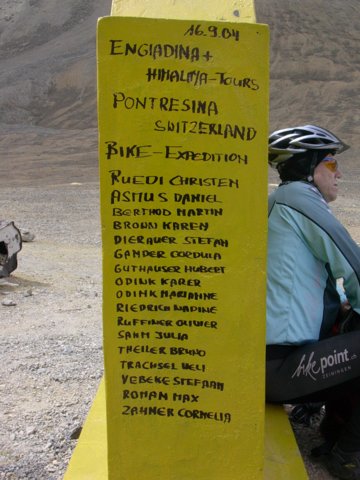 16.9.04
ENGIADINA+
HIMALAYA-TOURS
PONTRESINA
SWITZERLAND
BIKE-EXPEDITION
RUEDI CHRISTEN
ASMUS DANIEL
BERTHOD MARTIN
BROWN KAREN
DIERAUER STEFAN
GANDER CORDULA
GUTHAUSER HUBERT
ODINK KARER
ODINK MARIANNE
RIEDRICH NADINE
RUFFINER OLIVIER
SAHM JULIA
THEILER BRUNO
TRACHSEL UELI
VEBEKE STEFAAN
ROMAN MAX
ZAHNER CORNELIA
bikepoint